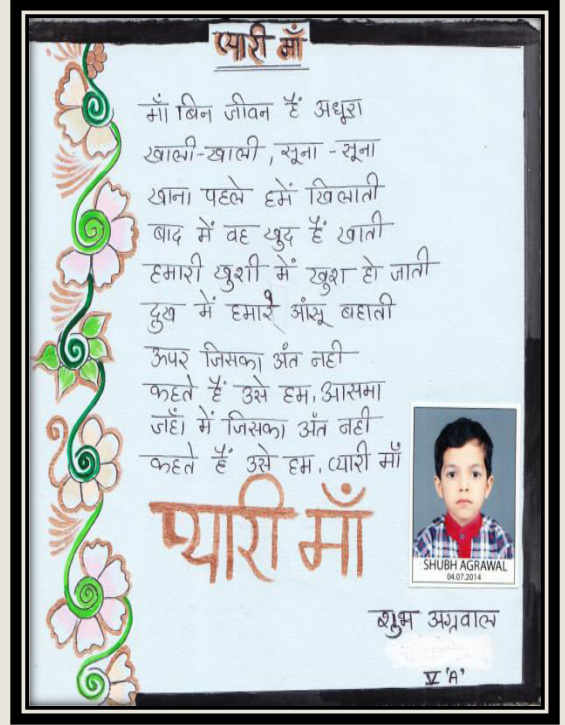 प्यारी माँ
माँ बिन जीवन हैं अधूरा
खाली-खाली, सूना-सूना
खाना पहले हमें खिलाती
बाद में वह खुद हैं खाती
हमारी खुशी में खुश हो जाती
दुख में हमारे आंसू बहाती
ऊपर जिसका अंत नही
कहते हैं उसे हम, आसमा
जहाँ में जिसका अंत नही
कहते हैं उसे हम, प्यारी माँ
प्यारी माँ
SHUBH AGRAWAL
04.07.2014
शुभ अग्रवाल
V 'A'